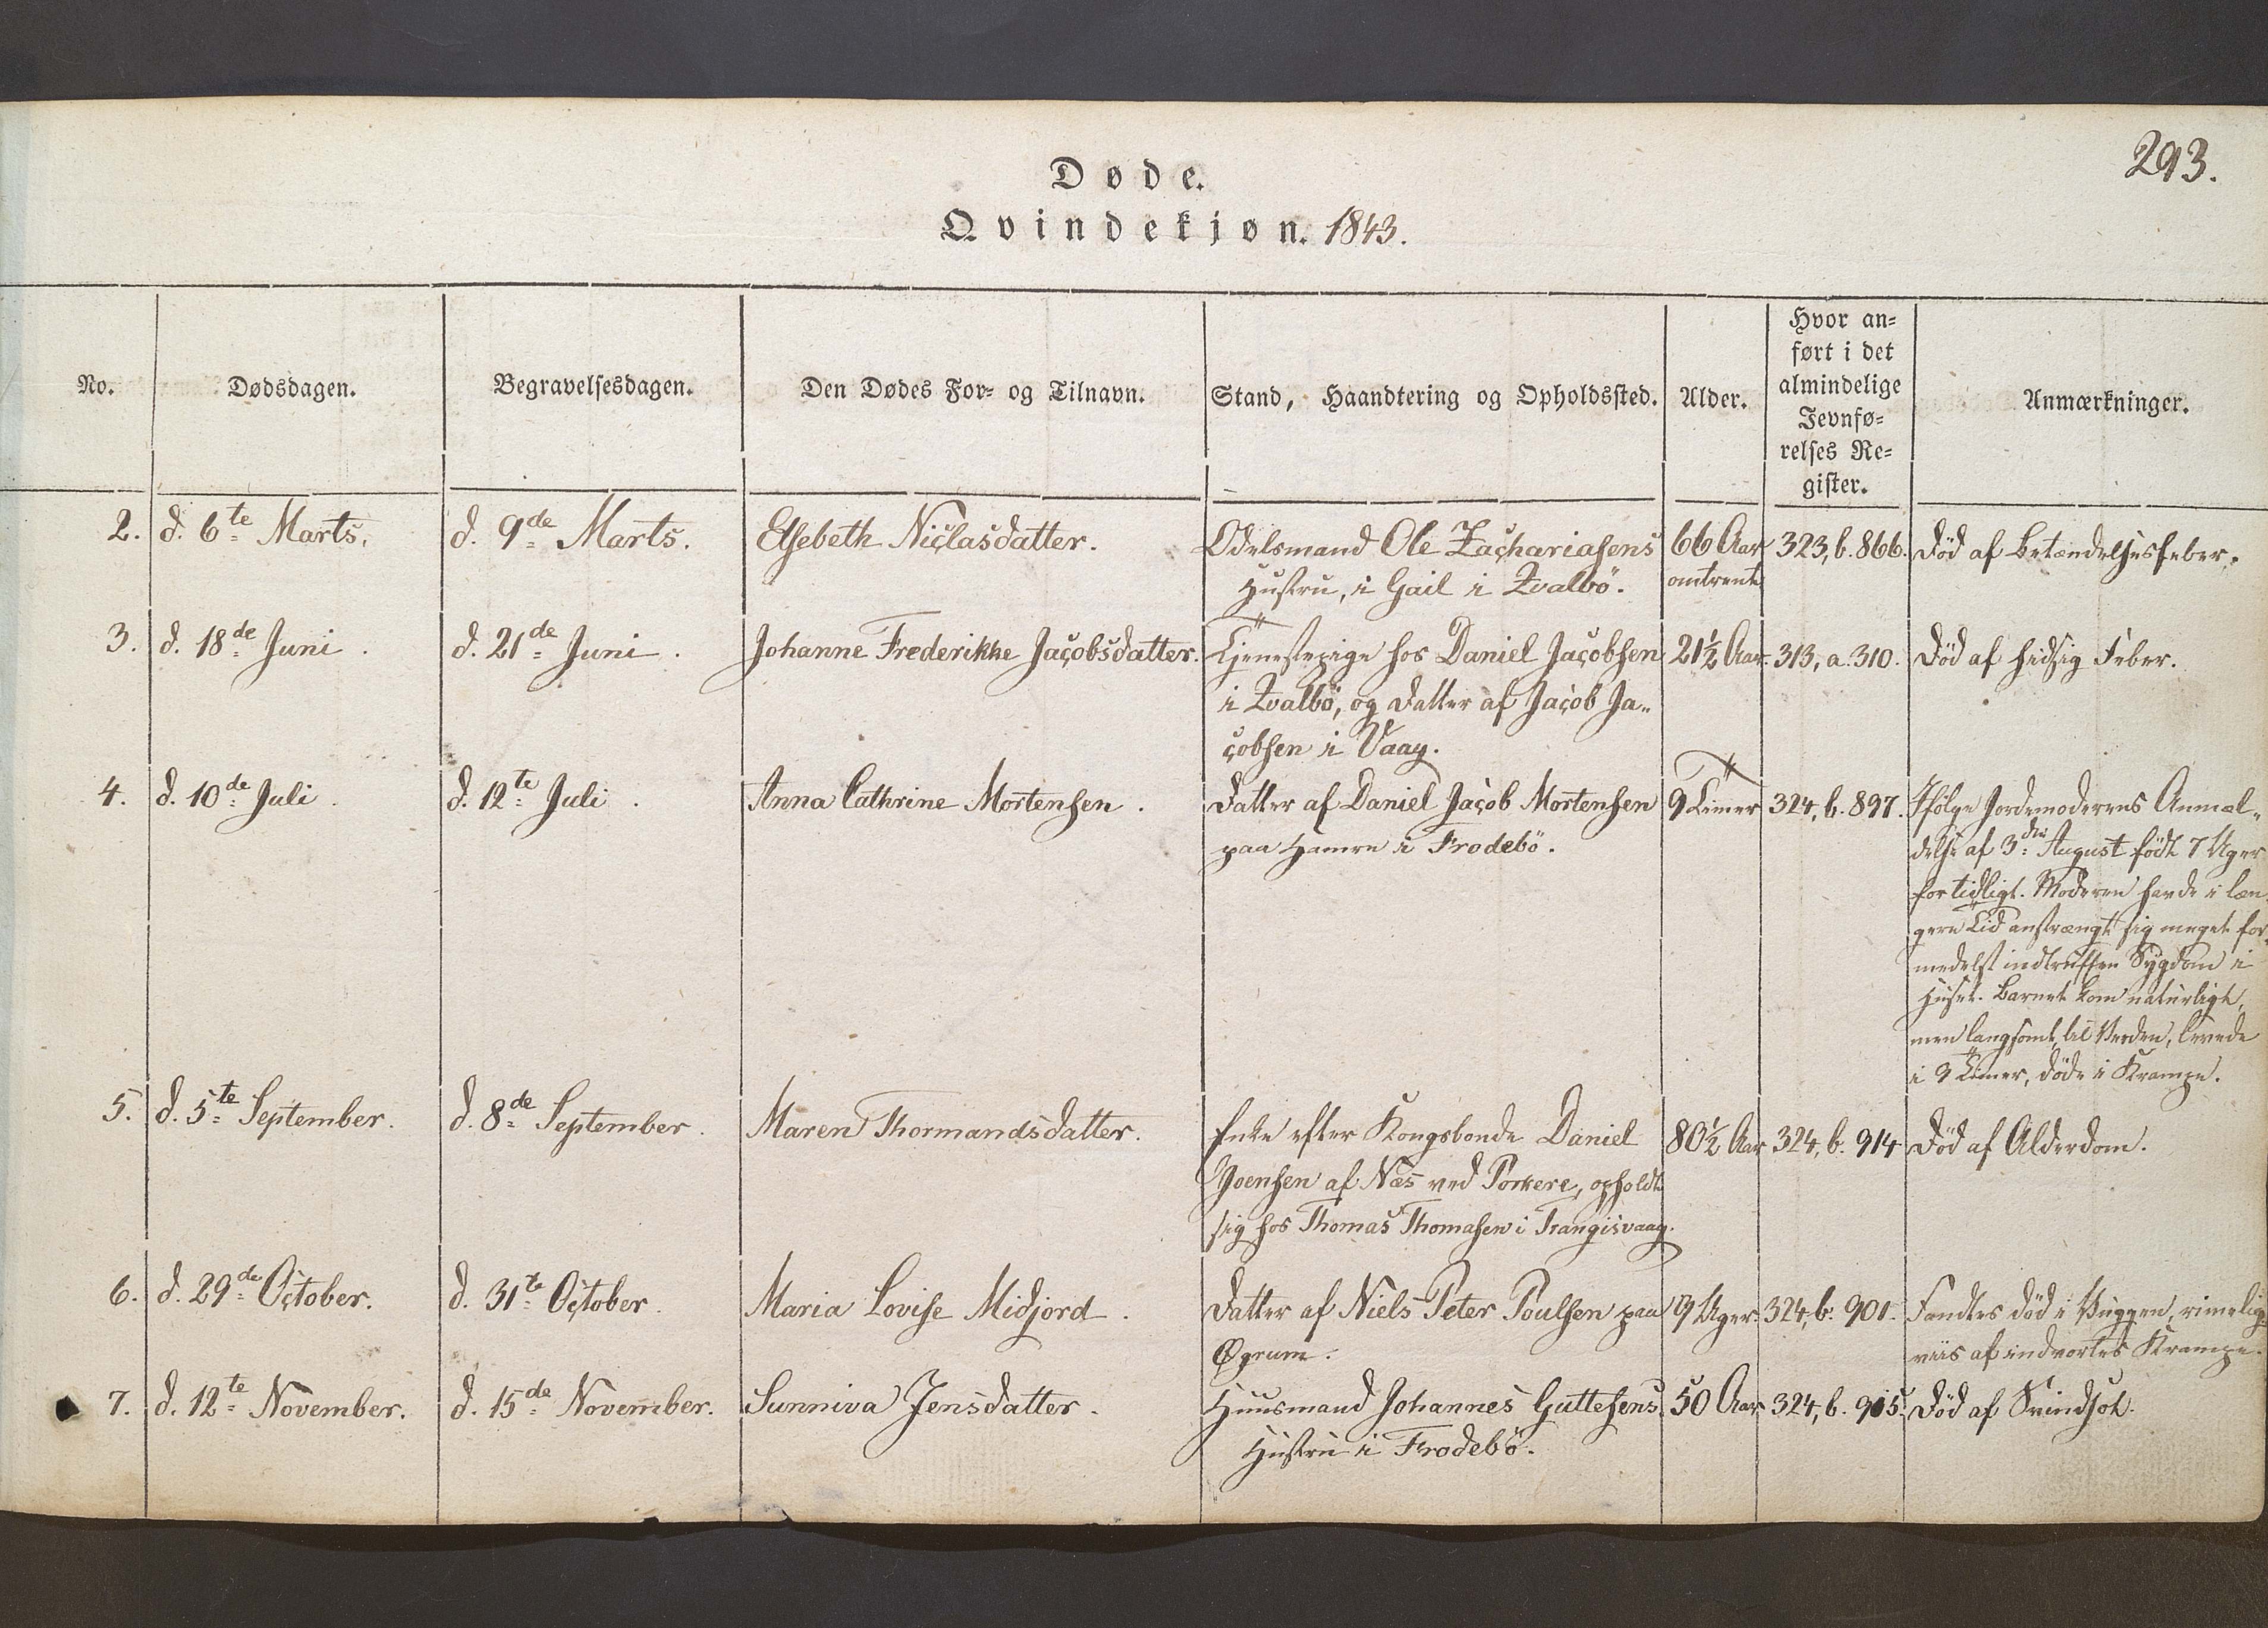 293.
Døde.
Qvindekjøn. 1843.
No.
Dødsdagen.
Begravelsesdagen.
Den Dødes For- og Tilnavn.
Stand, Haandtering og Opholdssted.
Alder.
Hvor an=
ført i det
almindelige
Jevnfø=
relses Re=
gister.
Anmærkninger.
2.
d. 6te Marts.
d. 9de Marts.
Elsebeth Niclasdatter.
Odelsmand Ole Zachariasens
Hustru, i Gail i Qvalbö.
66 Aar
omtrent
323, b. 866.
Död af Betændelsesfeber.
3.
d. 18de Juni.
d. 21de Juni.
Johanne Frederikke Jacobsdatter.
Tjenestepige hos Daniel Jacobsen
i Qvalbö, og Datter af Jacob Ja-
cobsen i Vaag.
21½ Aar.
313, a. 310.
Död af hidsig Feber.
4.
d. 10de Juli.
d. 12te Juli.
Anna Cathrine Mortensen.
Datter af Daniel Jacob Mortensen
paa Hamre i Frodebö.
9 Timer
324, b. 897.
Ifölge Jordemoderens Anmel-
delse af 3die August födt 7 Uger
for tidligt. Moderen havde i læn-
gere Tid anstrængt sig meget for-
medelst indtruffen Sygdom i
Huset. Barnet kom naturligt,
men langsomt, til Verden, levede
i 9 Timer, döde i Krampe.
5.
d. 5te September.
d. 8de September.
Maren Thormandsdatter.
Enke efter Kongsbonde Daniel
Joensen af Næs ved Porkere, opholdt
sig hos Thomas Thomasen i Trangisvaag.
80½ Aar
324, b. 914
Död af Alderdom.
6.
d. 29de October.
d. 31te October.
Maria Lovise Midjord.
Datter af Niels Peter Poulsen paa
Øgrum.
9 Uger.
324, b. 901.
Fandtes död i Vuggen, rimelig-
viis af indvortes Krampe.
7.
d. 12te November.
d. 15de November.
Sunniva Jensdatter.
Huusmand Johannes Guttesens
Hustru i Frodebö.
50 Aar
324, b. 915.
Död af Svindsot.